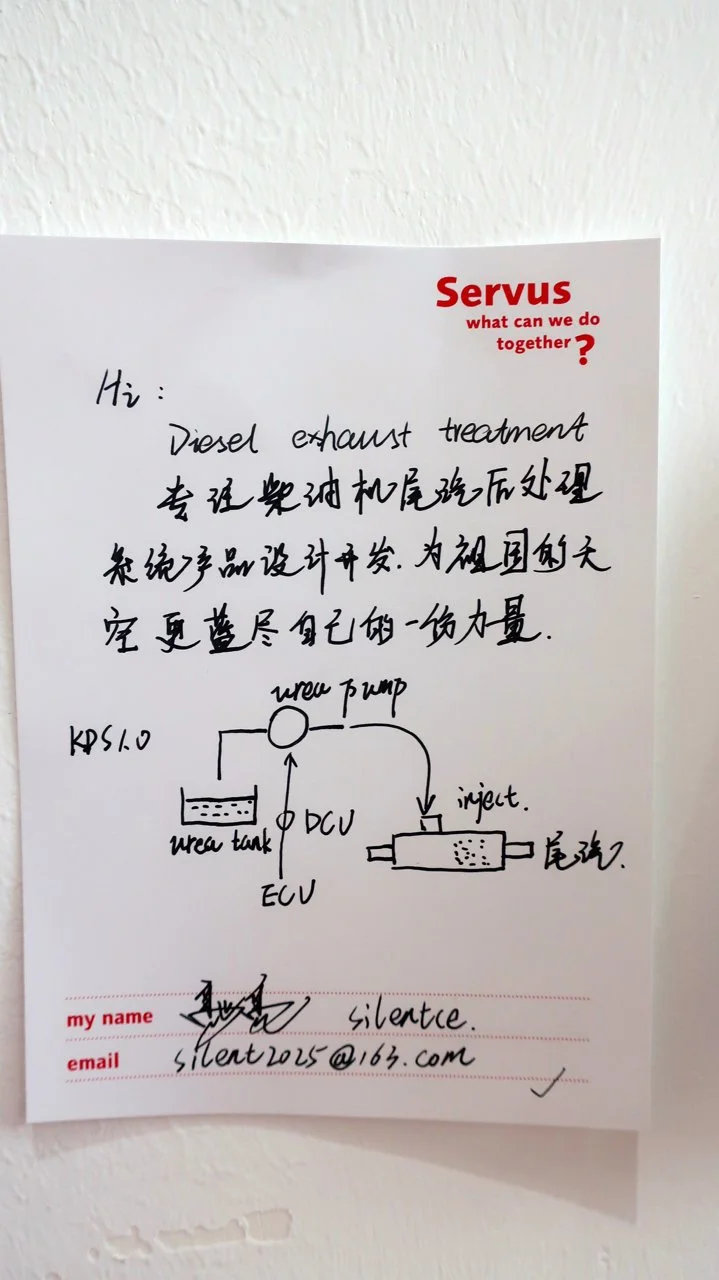 Servus
what can we do
together?
Hi:
Diesel exhaust treatment
专注柴油机尾汽后处理
系统产品设计开发.为祖国的天
空更蓝尽自己的一份力量.
urea pump
KDS1.0
inject.
urea tank
DCU
尾汽.
ECU
my name silentce.
email silent2025@163.com